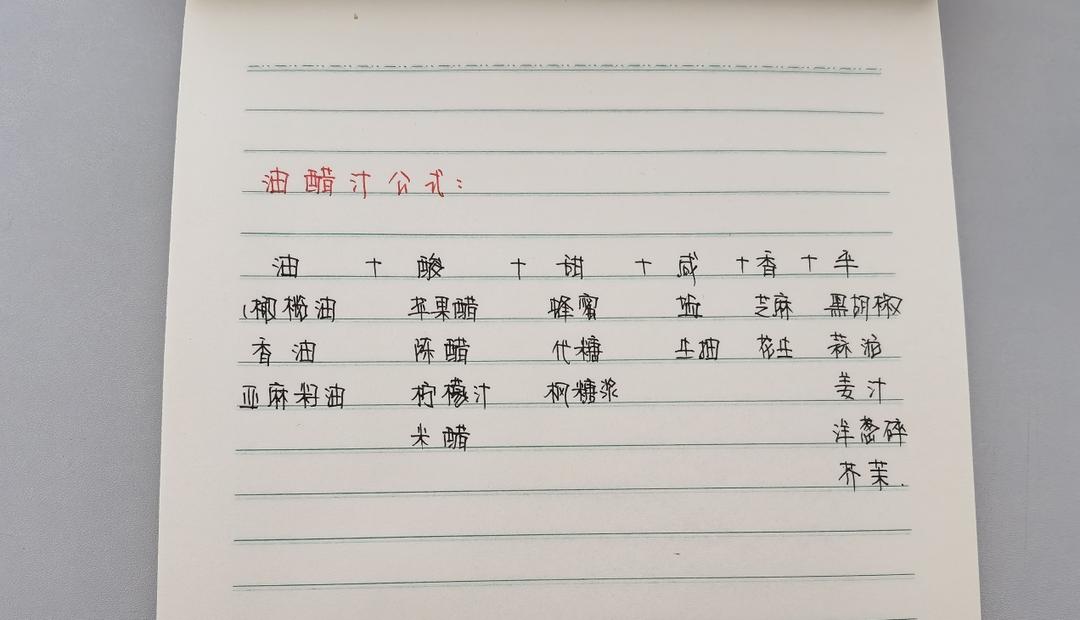 油醋汁公式：
油 + 酸 + 甜 + 咸 + 香 + 辛
橄榄油 苹果醋 蜂蜜 盐 芝麻 黑胡椒
香油 陈醋 代糖 生抽 花生 蒜泥
亚麻籽油 柠檬汁 枫糖浆 姜汁
米醋 洋葱碎
芥茉.